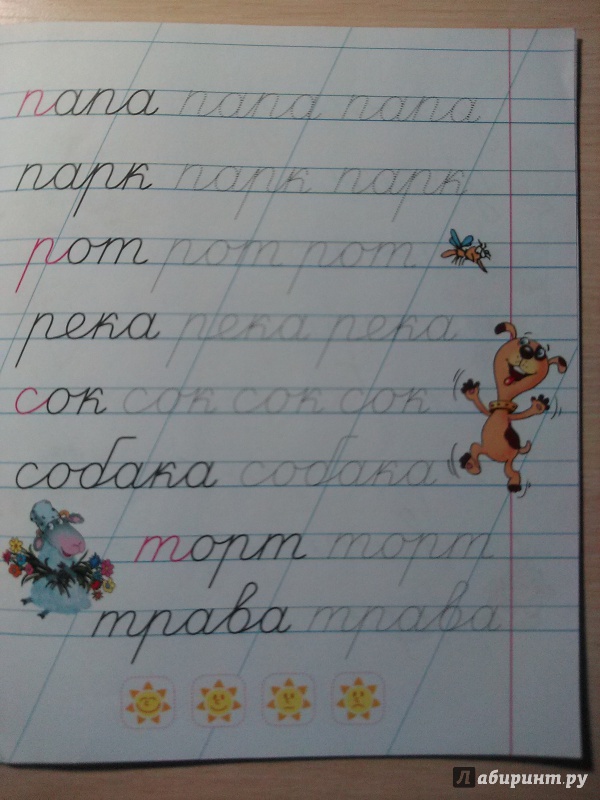 папа папа папа
парк парк парк
рот рот рот
река река река
сок сок сок сок
собака собака
торт торт
трава трава
Лабиринт.ру